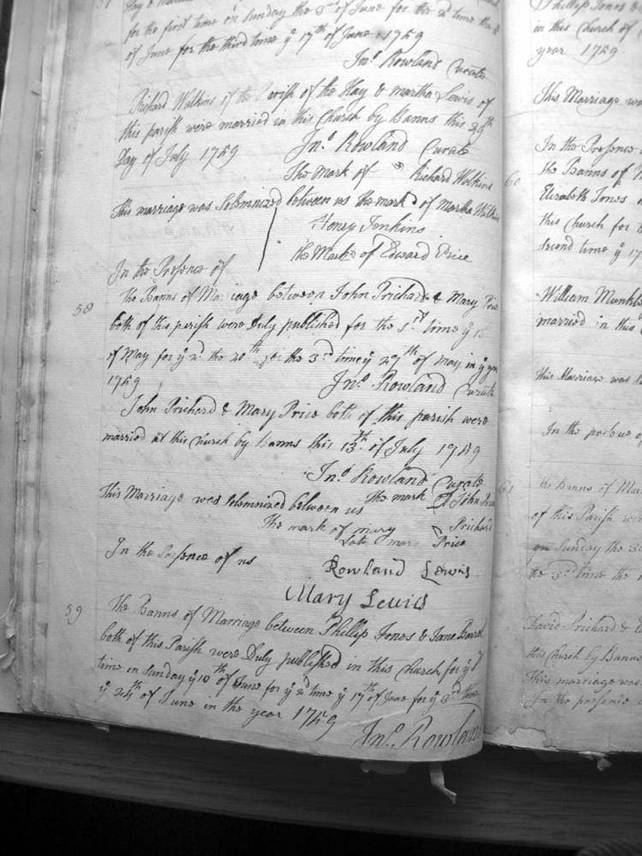 for the first time on Sunday the 3rd of June for the 2d time the
of June for the third time ye 17th of June 1759
Jno Rowland Curate
Richard Watkins of the Parish of the Hay & Martha Lewis of
this parish were married in this Church by Banns this 29th
Day of July 1759 Jno Rowland Curate
the mark of Richard Watkins
This marriage was Solemnized between us the mark of Martha
Henry Jenkins
the Mark of Edward Price
In the Presence of
58
the Banns of Marriage between John Prichard & Mary Price
both of this parish were Duly published for the 1st time ye
of May for ye 2d the 20th for the 3rd time ye 27th of May in ye year
1759 Jno Rowland Curate
John Prichard & Mary Price both of this parish were
married at this Church by Banns this 13th of July 1759
Jno Rowland Curate
This Marriage was Solemnized between us the mark John
Prichard
the mark of Mary Price
In the Presence of us Rowland Lewis
Mary Lewis
59
The Banns of Marriage between Phillip Jones & Jane
both of this Parish were Duly published in this Church for ye
time on Sunday ye 10th of June for ye 2 time ye 17th of June for ye 3rd time
ye 24th of June in the year 1759
Jno Rowland
Phillip Jones
in this Church of
year 1759
This Marriage was
In the Presence
60
the Banns of
Elizabeth Jones
this Church for
second time ye 17
William
married in this
This Marriage was
In the presence of
61
the Banns of
of this Parish were
on Sunday the
the 3rd time the
David Prichard &
this Church by Banns
This marriage was
In the presence